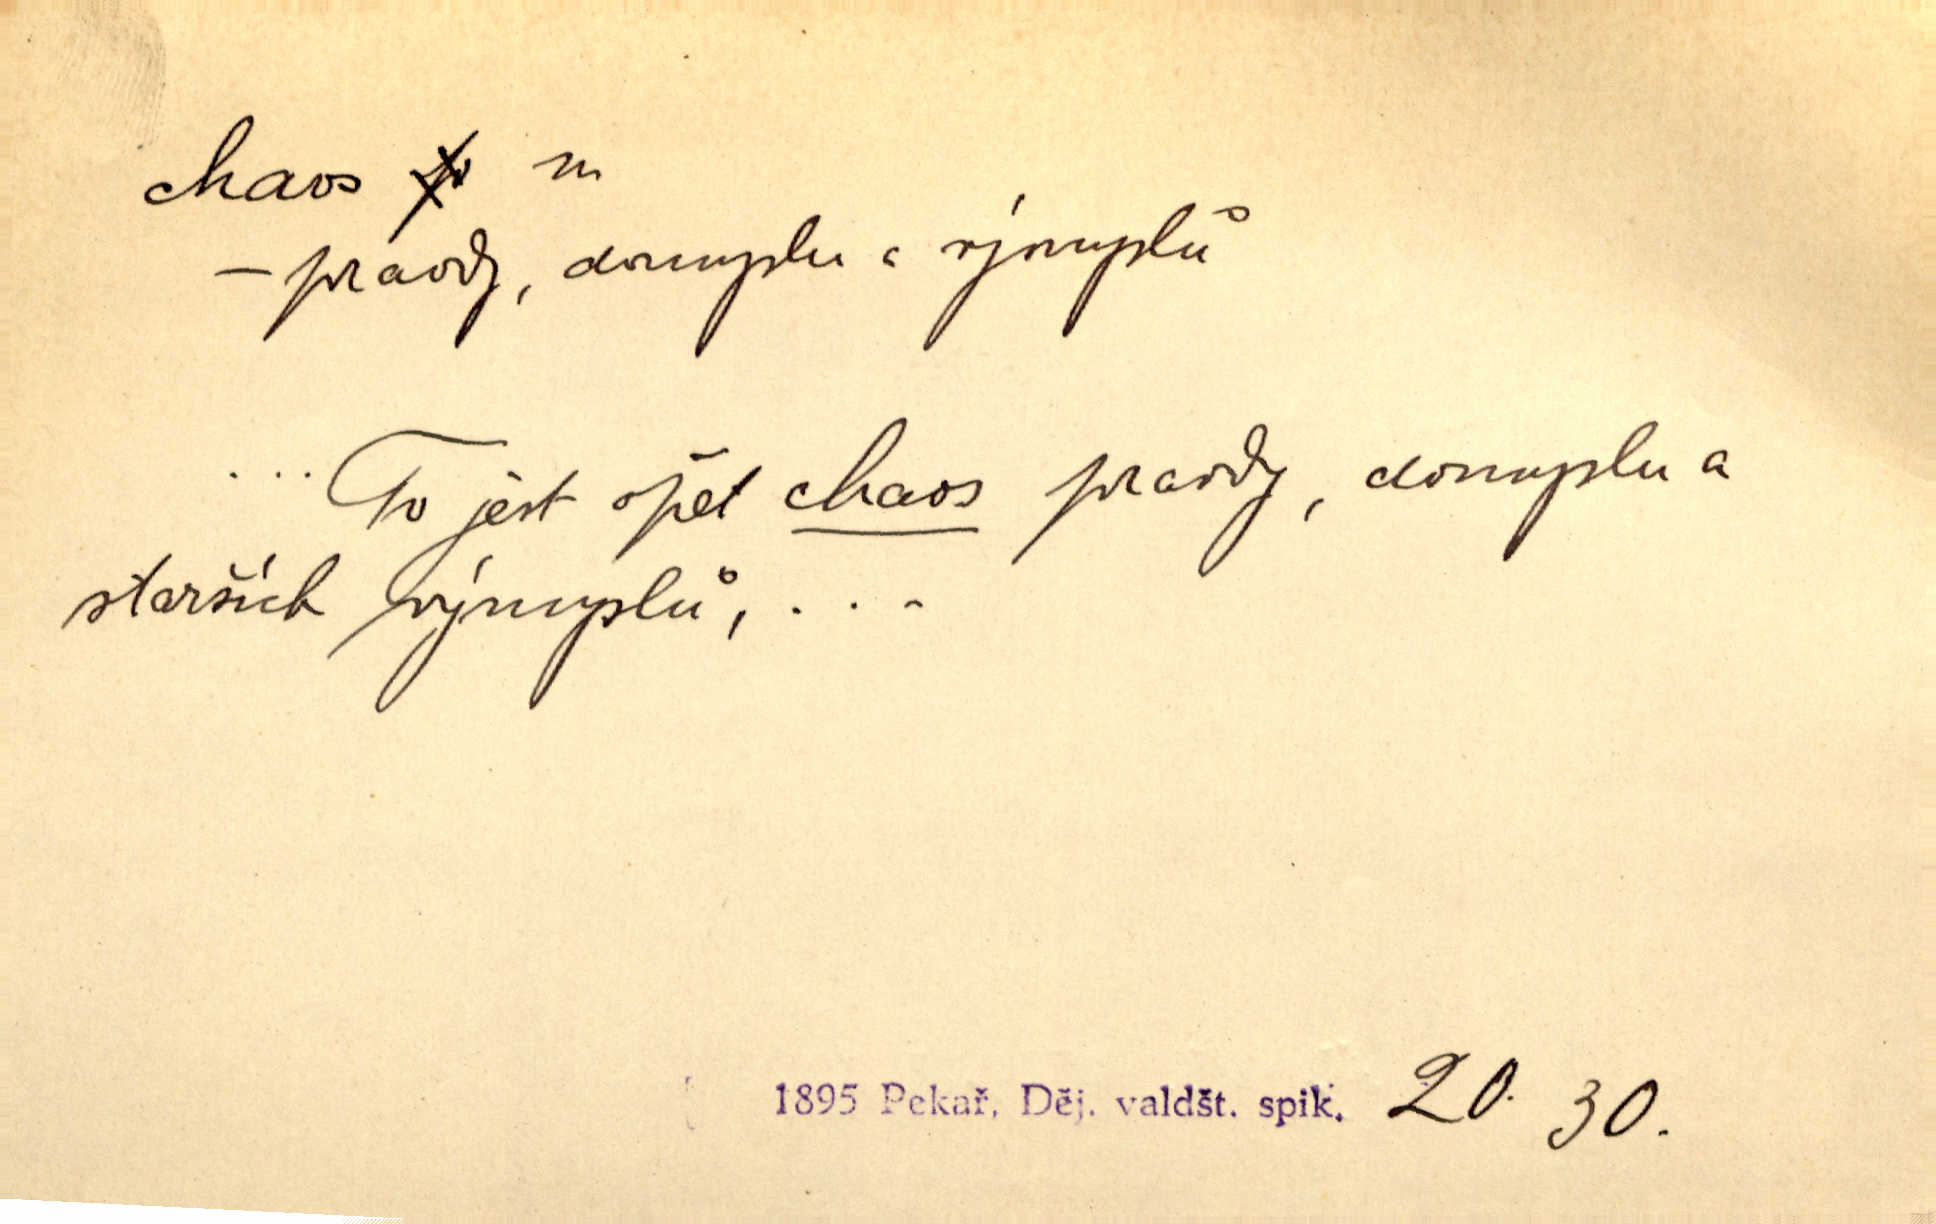 chaos m
– pravdy, domyslu a výmyslů
... To jest opět chaos pravdy, domyslu a
starších výmyslů, ...
1895 Pekař, Děj. valdšt. spik. 20. 30.